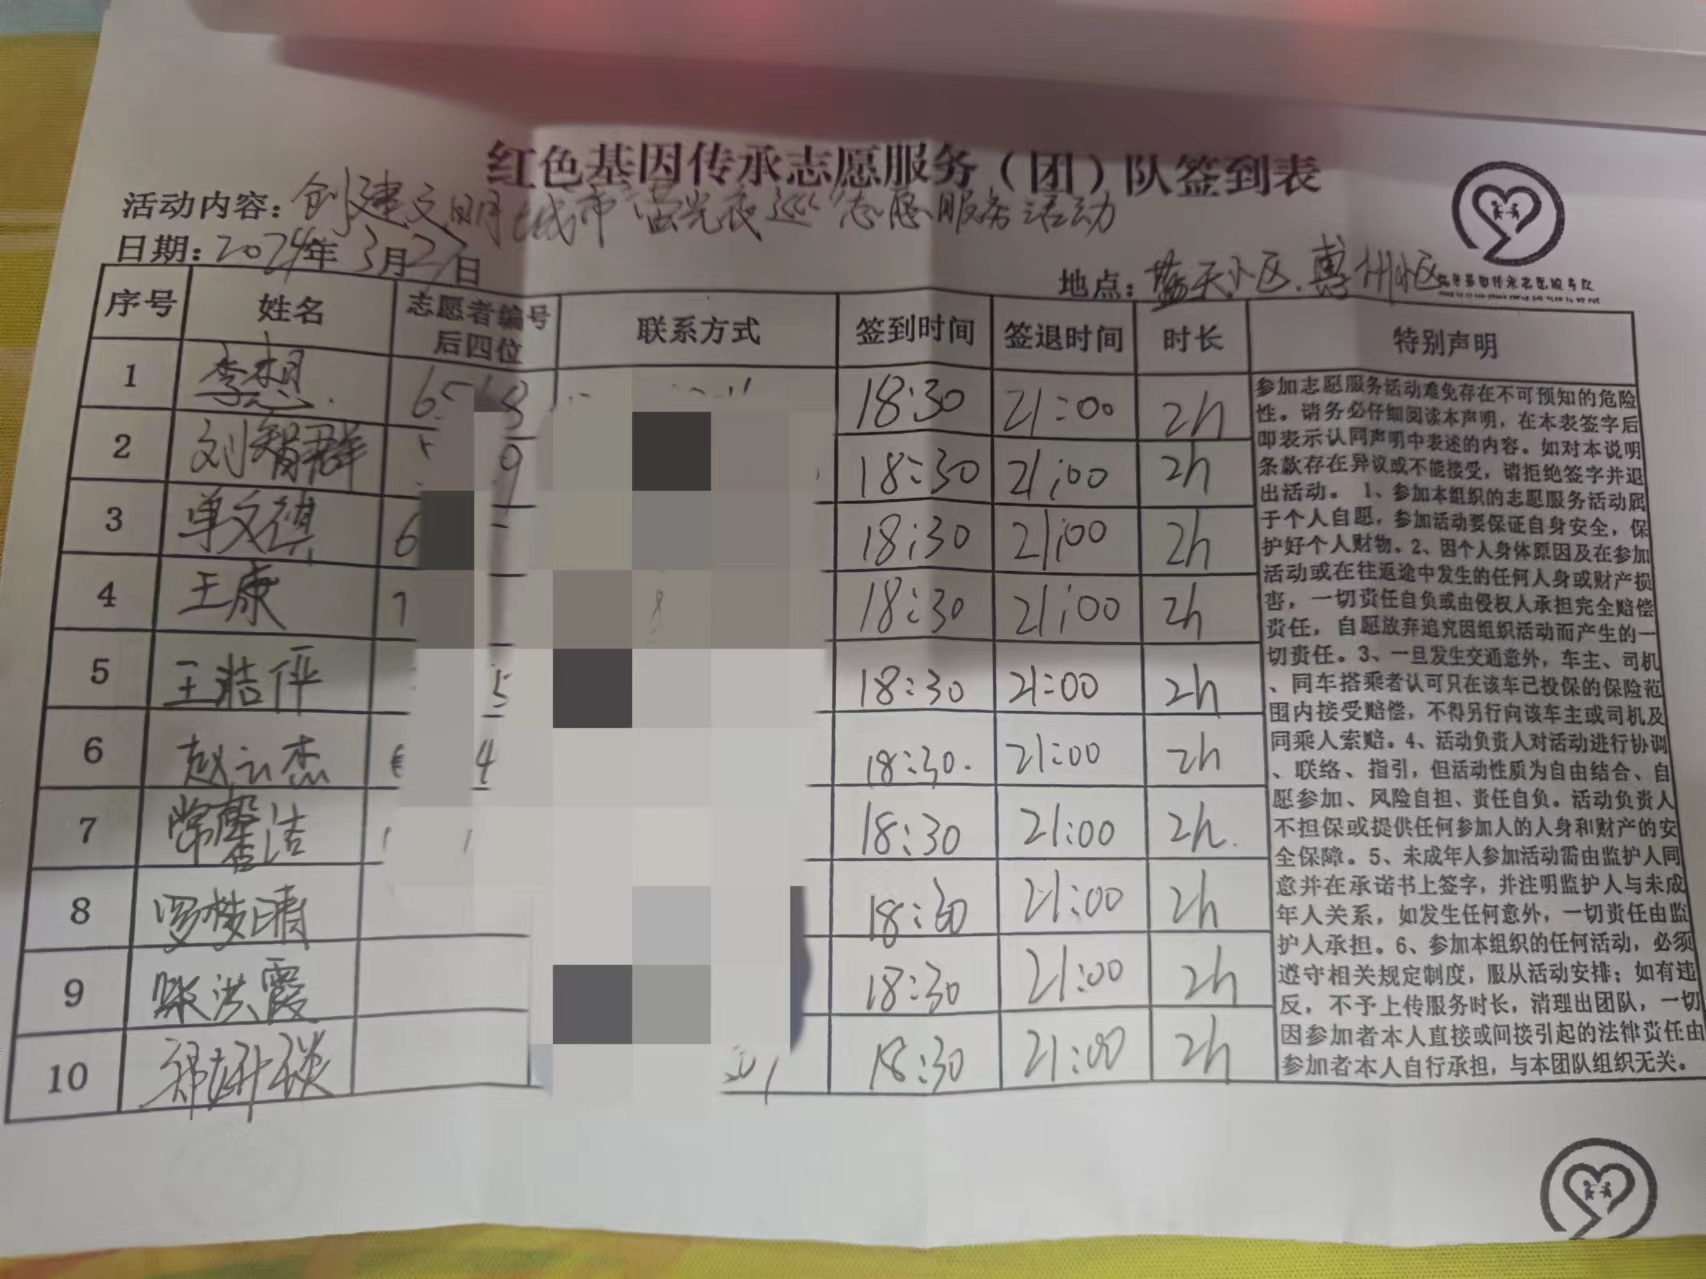 红色基因传承志愿服务（团）队签到表
活动内容：创建文明城市"萤光夜巡"志愿服务活动
日期：2024年3月27日
地点：蓝天小区、博州小区
序号 姓名 志愿者编号后四位 联系方式 签到时间 签退时间 时长 特别声明
1 李想 18:30 21:00 2h
2 刘智群 18:30 21:00 2h
3 单文祺 18:30 21:00 2h
4 王康 18:30 21:00 2h
5 王浩伊 18:30 21:00 2h
6 赵云杰 18:30 21:00 2h
7 常馨洁 18:30 21:00 2h
8 罗梦晴 18:30 21:00 2h
9 张洪霞 18:30 21:00 2h
10 18:30 21:00 2h
参加志愿服务活动难免存在不可预知的危险
性。请务必仔细阅读本声明，在本表签字后
即表示认同声明中表述的内容。如对本说明
条款存在异议或不能接受，请拒绝签字并退
出活动。 1、参加本组织的志愿服务活动属
于个人自愿，参加活动要保证自身安全，保
护好个人财物。2、因个人身体原因及在参加
活动或在往返途中发生的任何人身或财产损
害，一切责任自负或由侵权人承担完全赔偿
责任，自愿放弃追究因组织活动而产生的一
切责任。3、一旦发生交通意外，车主、司机
、同车搭乘者认可只在该车已投保的保险范
围内接受赔偿，不得另行向该车主或司机及
同乘人索赔。4、活动负责人对活动进行协调
、联络、指引，但活动性质为自由结合、自
愿参加、风险自担、责任自负。活动负责人
不担保或提供任何参加人的人身和财产的安
全保障。5、未成年人参加活动需由监护人同
意并在承诺书上签字，并注明监护人与未成
年人关系，如发生任何意外，一切责任由监
护人承担。6、参加本组织的任何活动，必须
遵守相关规定制度，服从活动安排；如有违
反，不予上传服务时长，清理出团队，一切
因参加者本人直接或间接引起的法律责任由
参加者本人自行承担，与本团队组织无关。